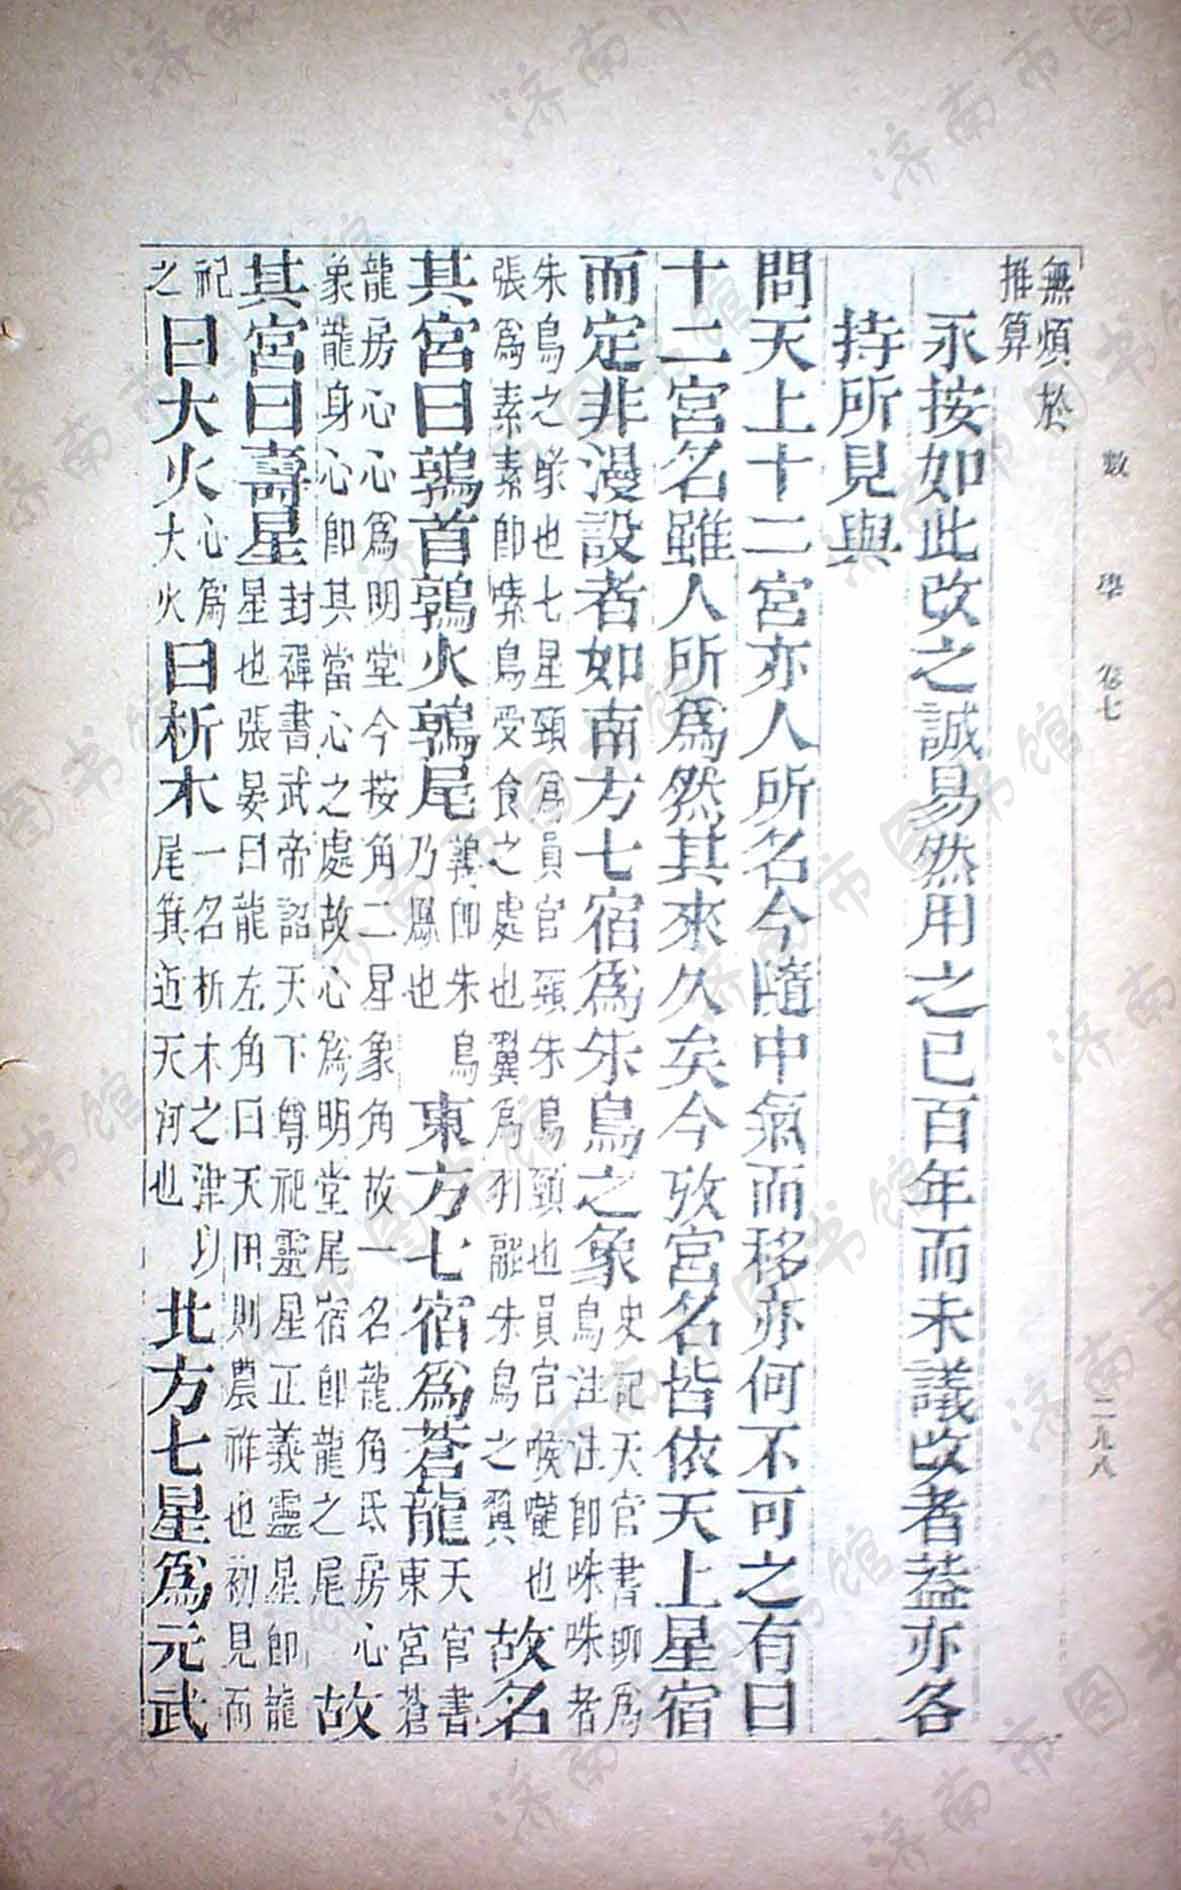 數學 卷七 二九八
無煩於
推算
永按如此改之誠易然用之已百年而未議改者葢亦各
持所見與
問天上十二宮亦人所名今隨中氣而移亦何不可之有曰
十二宮名雖人所爲然其來久矣今攷宮名皆依天上星宿
而定非漫設者如南方七宿爲朱鳥之象史記天官書桞爲鳥注注即咮咮者
朱鳥之喙也七星頸爲員官頸朱鳥頸也員官喉嚨也張爲素素即嗉鳥受食之處也翼爲羽翮朱鳥之翼故名
其宮曰鶉首鶉火鶉尾鶉即朱鳥乃鳳也東方七宿爲蒼龍天官書東宮蒼
龍房心心爲明堂今按角二星象角故一名龍角氐房心象龍身心即其當心之處故心爲明堂尾宿即龍之尾故
其宮曰壽星封禪書武帝詔天下尊祀靈星正義靈星即龍星也張晏曰龍左角曰天田則農祥也初見而
祀之曰大火心爲大火曰析木一名析木之津以尾箕近天河也北方七星爲元武
济南市图书馆